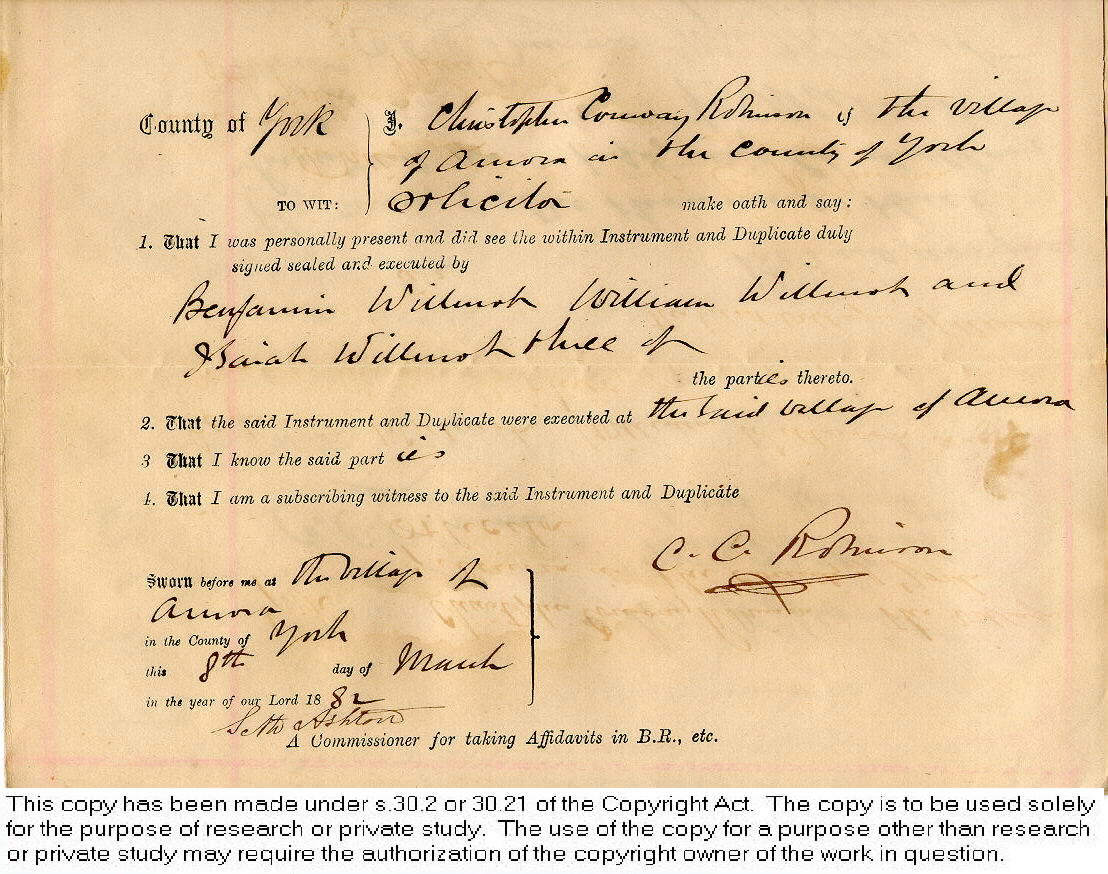 County of York } I. Christopher Conway Robinson of the village
of Aurora in the county of York
TO WIT: Solicitor make oath and say:
1. That I was personally present and did see the within Instrument and Duplicate duly
signed sealed and executed by
Benjamin Willmot William Willmot and
Isaiah Willmot three of
the parties thereto.
2. That the said Instrument and Duplicate were executed at the said village of Aurora
3 That I know the said part ies
4. That I am a subscribing witness to the said Instrument and Duplicate
C. C. Robinson
Sworn before me at the village of
Aurora
in the County of York
this 8th day of March
in the year of our Lord 18 82
Seth Ashton
A Commissioner for taking Affidavits in B.R., etc.
This copy has been made under s.30.2 or 30.21 of the Copyright Act. The copy is to be used solely
for the purpose of research or private study. The use of the copy for a purpose other than research
or private study may require the authorization of the copyright owner of the work in question.